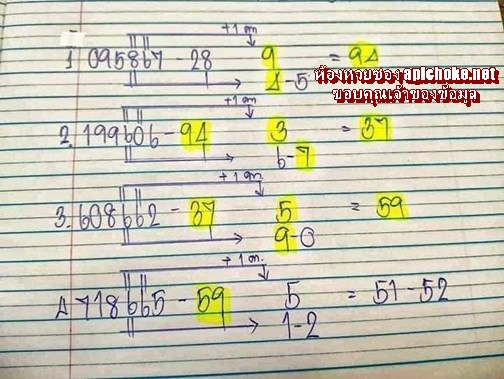 +1
1. 095867 - 28 9 = 94
4-5
ห้องหวยซองapichoke.net
ขอบคุณเจ้าของข้อมูล
+1
2. 199606 - 94 3 = 37
6-7
+1
3. 608662 - 37 5 = 59
9-0
+1
4 718665 - 59 5 = 51 - 52
1-2